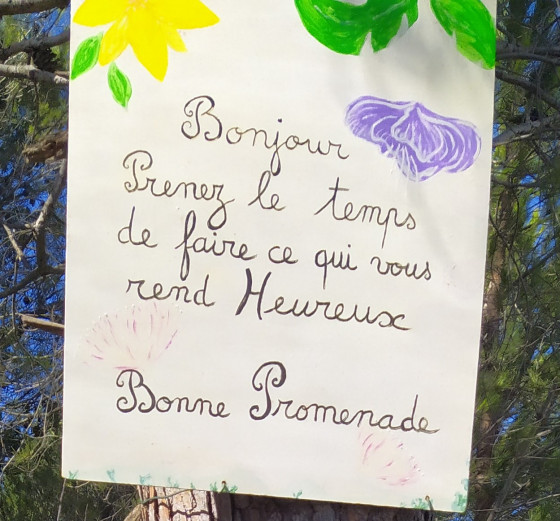 Bonjour
Prenez le temps
de faire ce qui vous
rend Heureux
Bonne Promenade